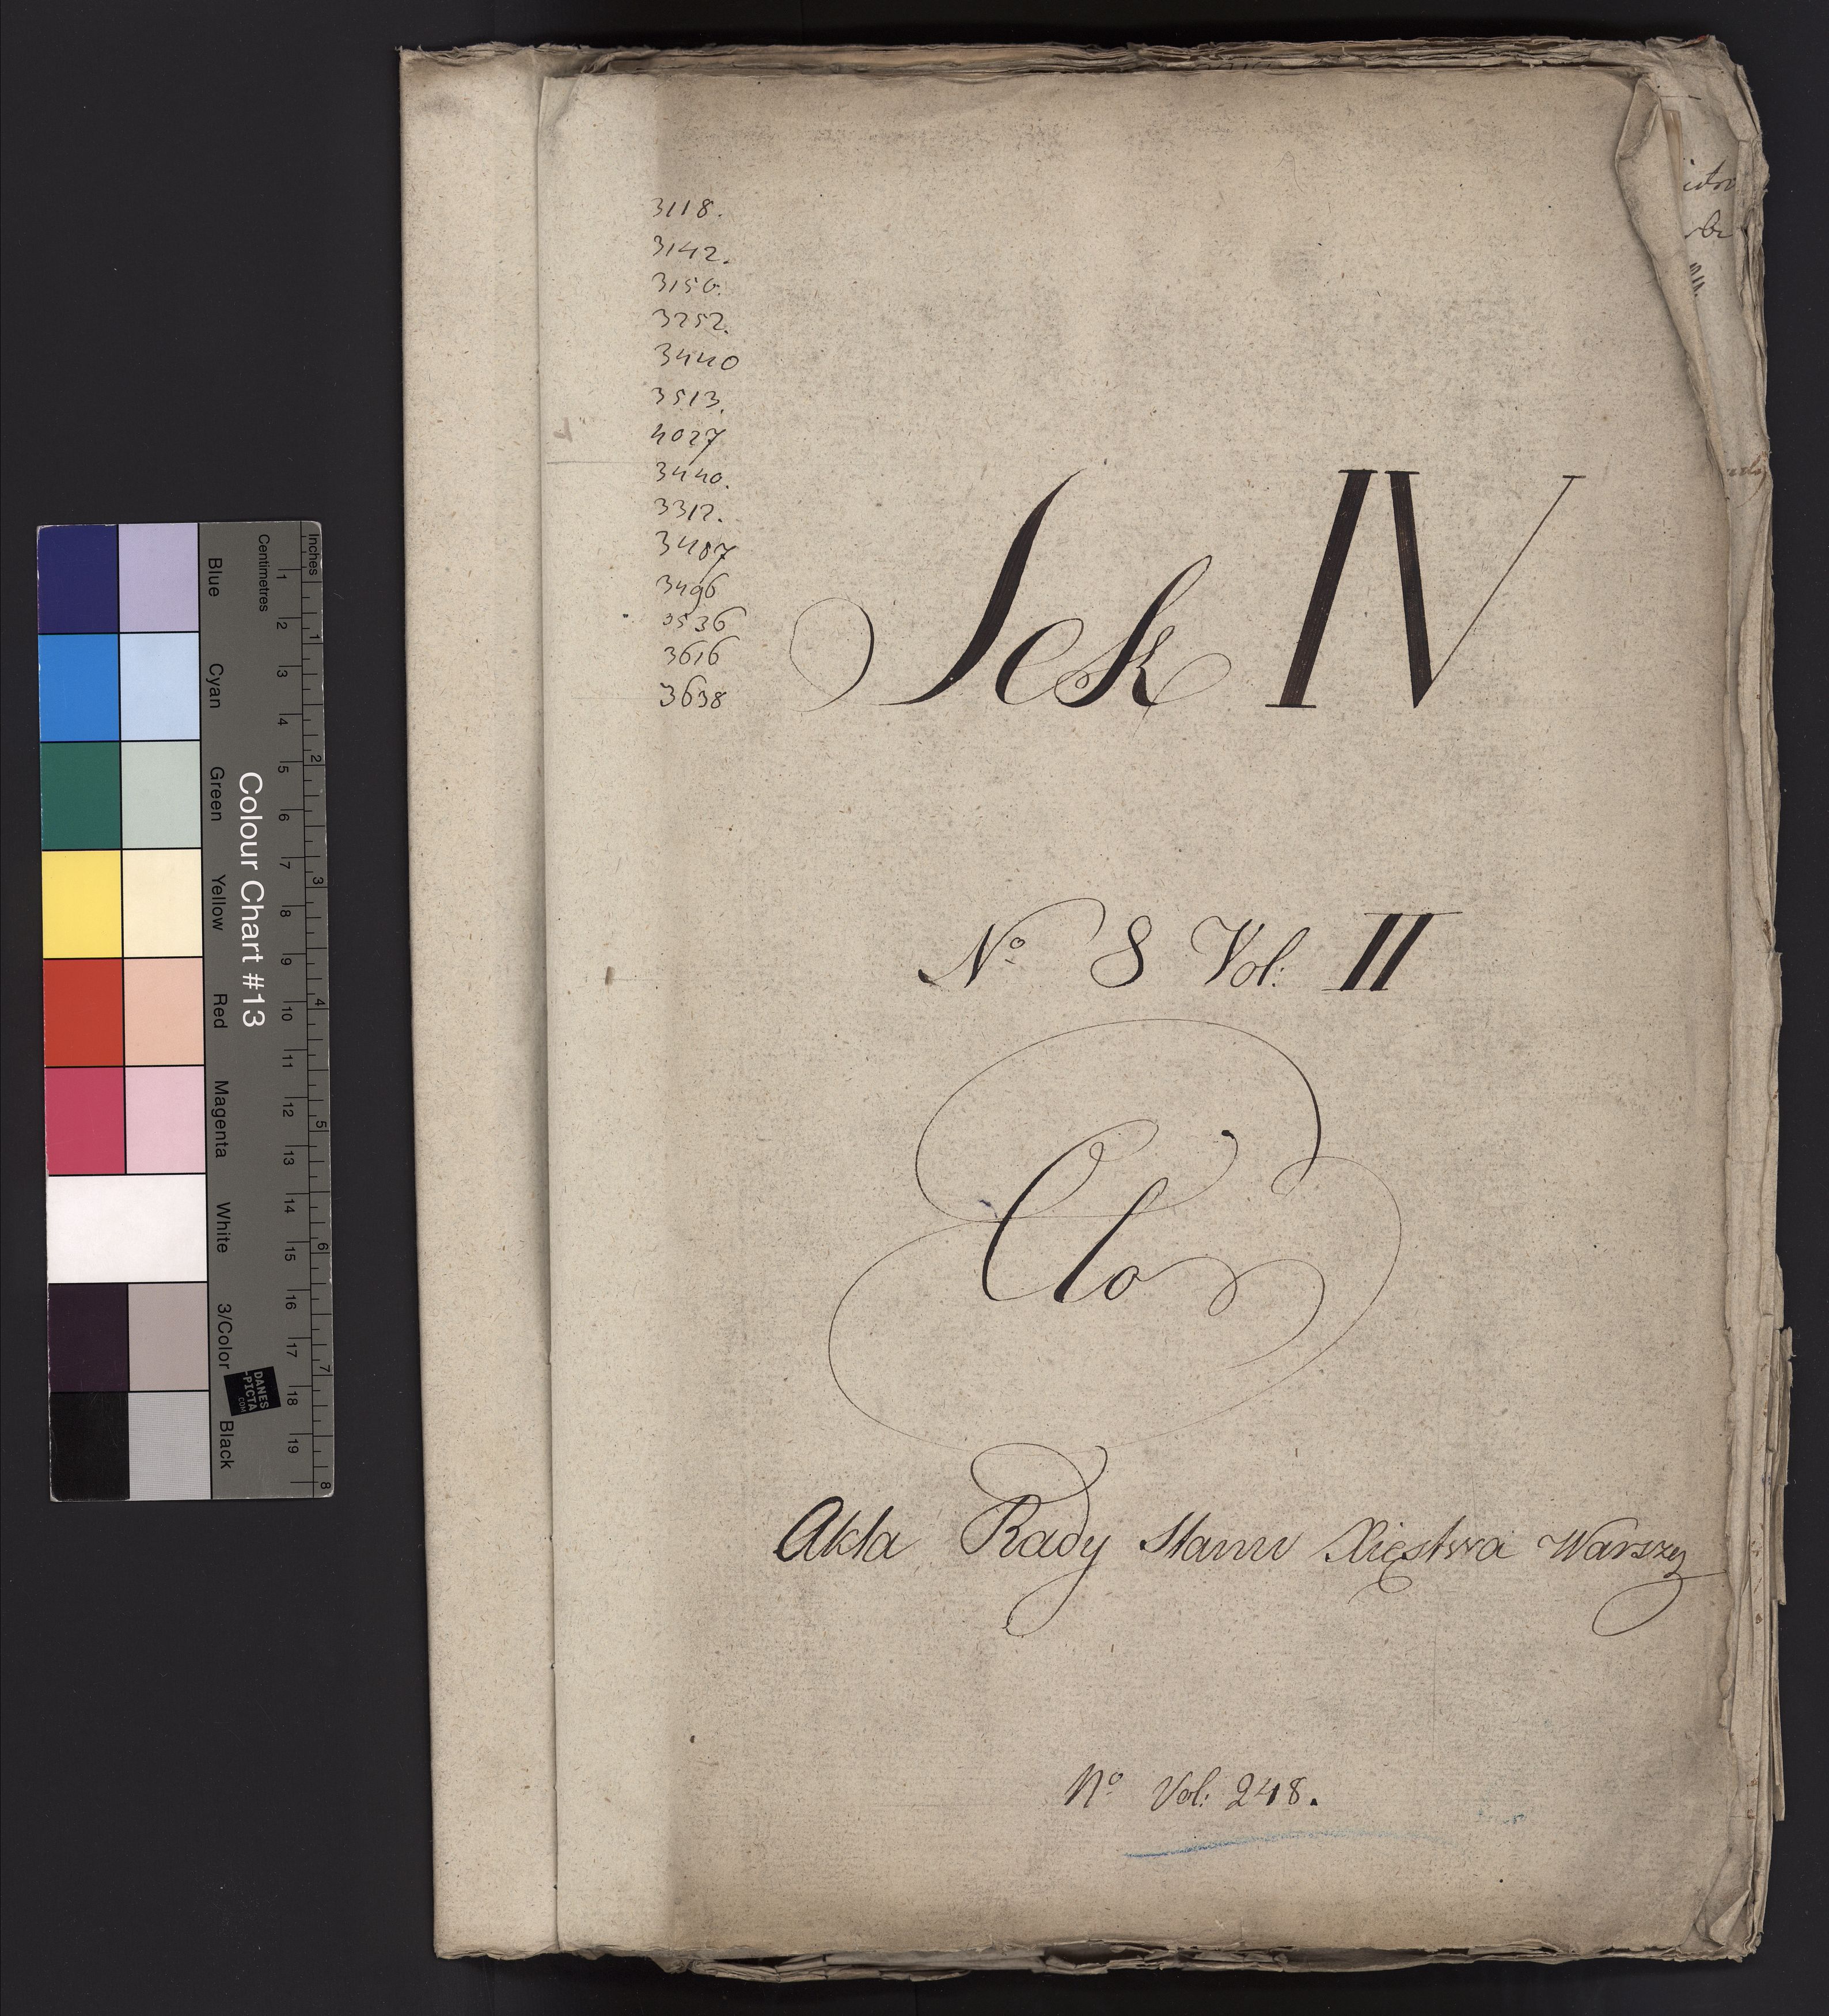 3118.
3142.
3156.
3252.
3440
3513.
4027
3440.
3312.
3487
3496
3536
3616
3638
Sek IV
No 8 Vol: II
Clo
Akta Rady Stanu Xięstwa Warszg
No Vol: 248.
Colour Chart #13
Blue
Cyan
Green
Yellow
Red
Magenta
White
3/Color
Black
Centimetres
Inches
1 2 3 4 5 6 7 8 9 10 11 12 13 14 15 16 17 18 19
1 2 3 4 5 6 7 8
DANES
-PICTA
.COM